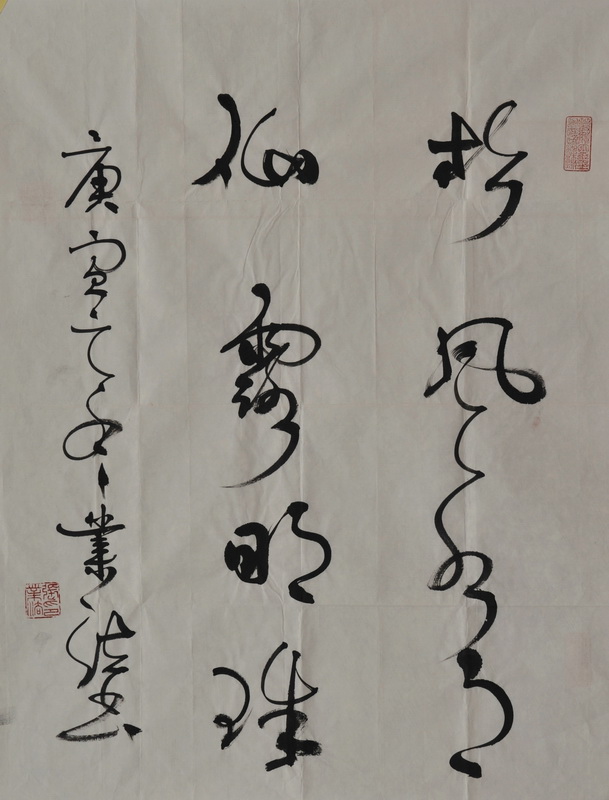 松風水月
仙露明珠
庚寅之年業书